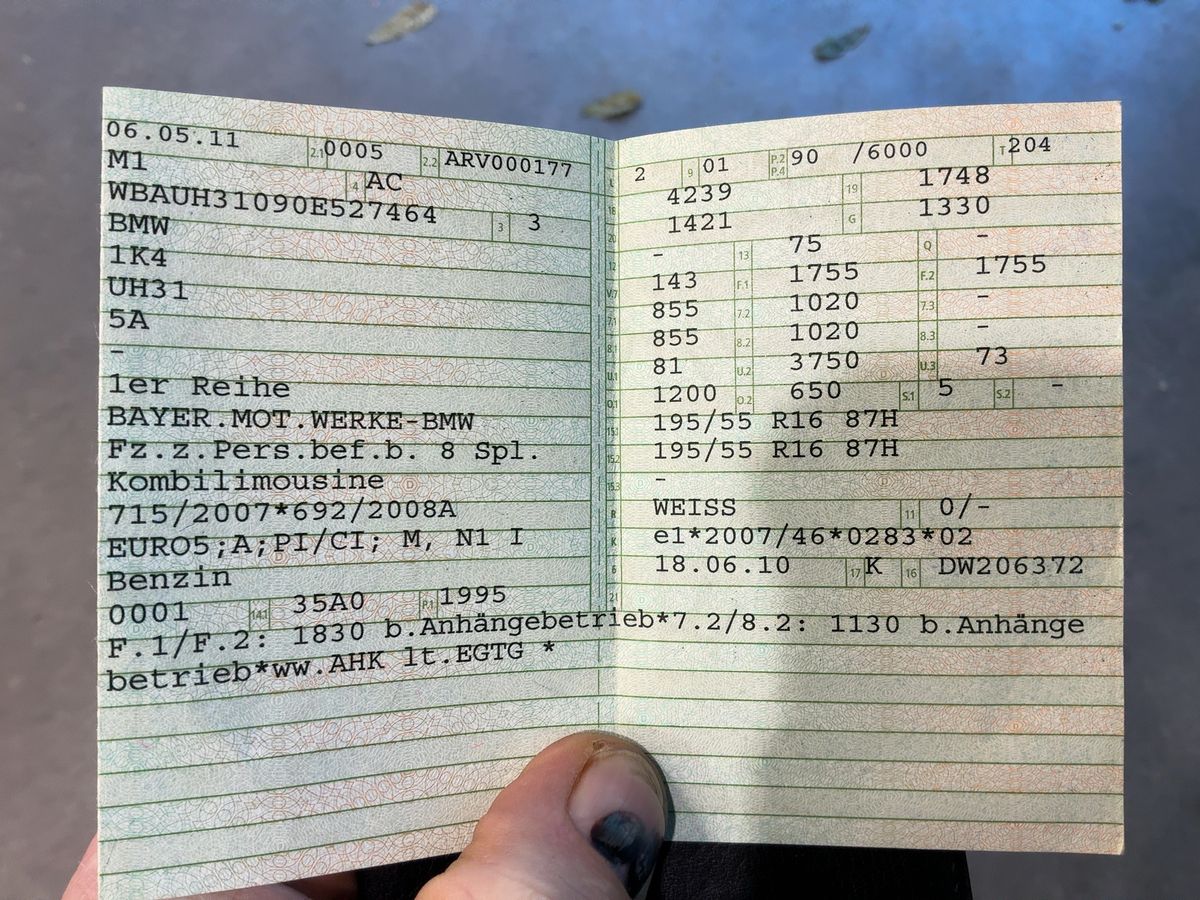 06.05.11 2.1 0005 2.2 ARV000177
M1 4 AC
WBAUH31090E527464 3 3
BMW
1K4
UH31
5A
-
1er Reihe
BAYER.MOT.WERKE-BMW
Fz.z.Pers.bef.b. 8 Spl.
Kombilimousine
715/2007*692/2008A
EURO5;A;PI/CI; M, N1 I
Benzin
0001 14.1 35A0 P.1 1995
L 2 9 01 P.2 P.4 90 /6000 T 204
18 4239 19 1748
20 1421 G 1330
12 - 13 75 Q -
V.7 143 F.1 1755 F.2 1755
7.1 855 7.2 1020 7.3 -
8.1 855 8.2 1020 8.3 -
U.1 81 U.2 3750 U.3 73
O.1 1200 O.2 650 S.1 5 S.2 -
15.1 195/55 R16 87H
15.2 195/55 R16 87H
15.3 -
R WEISS 11 0/-
K e1*2007/46*0283*02
6 18.06.10 17 K 16 DW206372
21
F.1/F.2: 1830 b.Anhängebetrieb*7.2/8.2: 1130 b.Anhänge
betrieb*ww.AHK lt.EGTG *